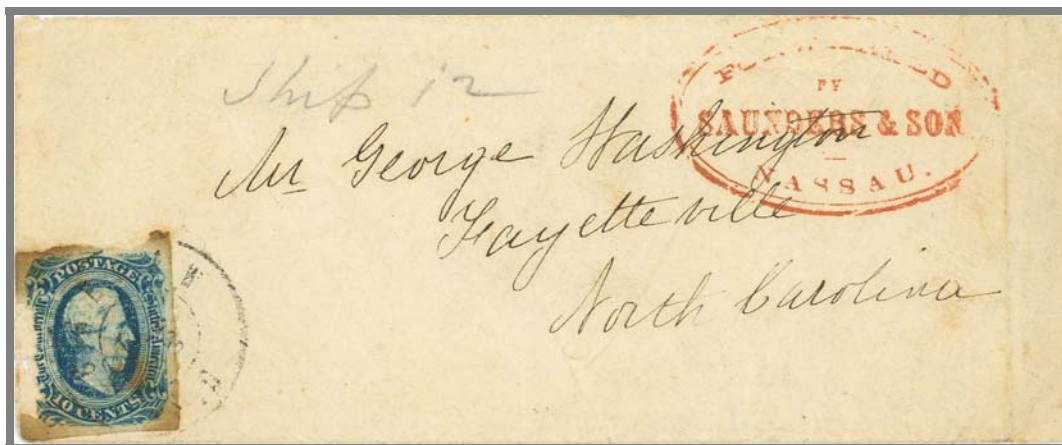 Ship 12
BY
SAUNDERS & SON
NASSAU.
Mr George Washington
Fayetteville
North Carolina
POSTAGE
CENTS